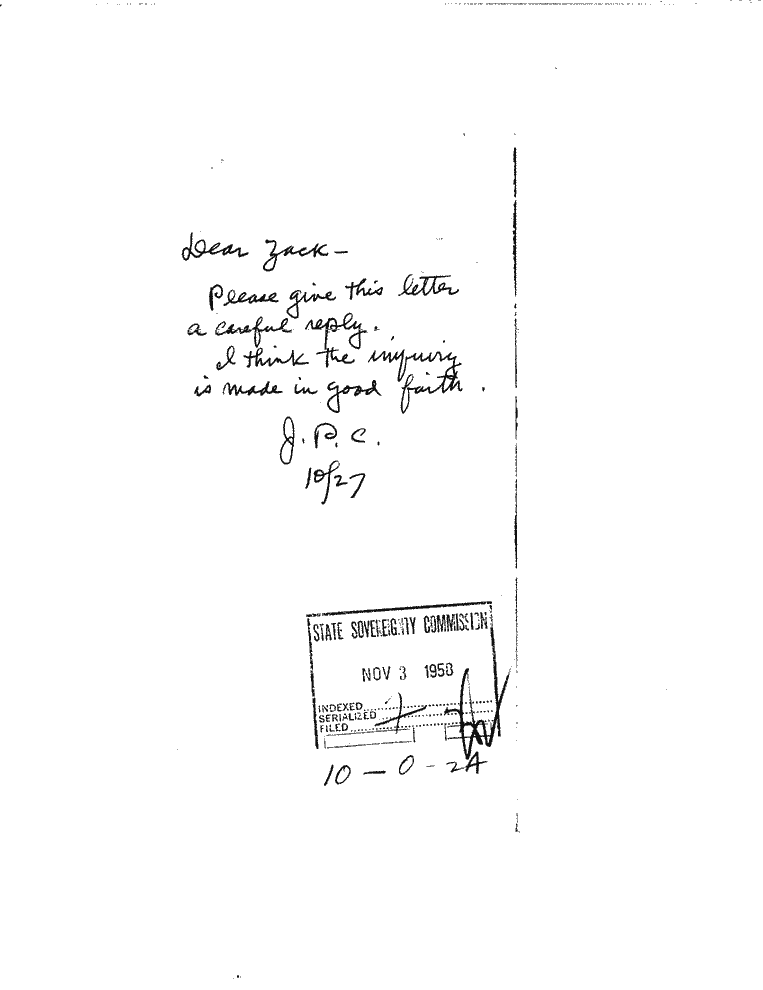 Dear Zack -
Please give this letter
a careful reply.
I think the inquiry
is made in good faith.
J.P.C.
10/27
STATE SOVEREIGNTY COMMISSION
NOV 3 1958
INDEXED
SERIALIZED
FILED
10 - 0 - 2A